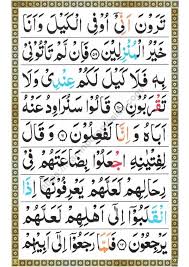 تَرَوْنَ اَنِّیْۤ اُوْفِی الْكَیْلَ وَاَنَا
خَیْرُ الْمُنْزِلِیْنَ ۝۵۹ فَاِنْ لَّمْ تَاْتُوْنِیْ
بِهٖ فَلَا كَیْلَ لَكُمْ عِنْدِیْ وَلَا
تَقْرَبُوْنِ ۝۶۰ قَالُوْا سَنُرَاوِدُ عَنْهُ
اَبَاهُ وَاِنَّا لَفٰعِلُوْنَ ۝۶۱ وَقَالَ
لِفِتْیٰنِهِ اجْعَلُوْا بِضَاعَتَهُمْ فِیْ
رِحَالِهِمْ لَعَلَّهُمْ یَعْرِفُوْنَهَاۤ اِذَا
انْقَلَبُوْۤا اِلٰۤی اَهْلِهِمْ لَعَلَّهُمْ
یَرْجِعُوْنَ ۝۶۲ فَلَمَّا رَجَعُوْۤا اِلٰۤی اَبِیْهِمْ